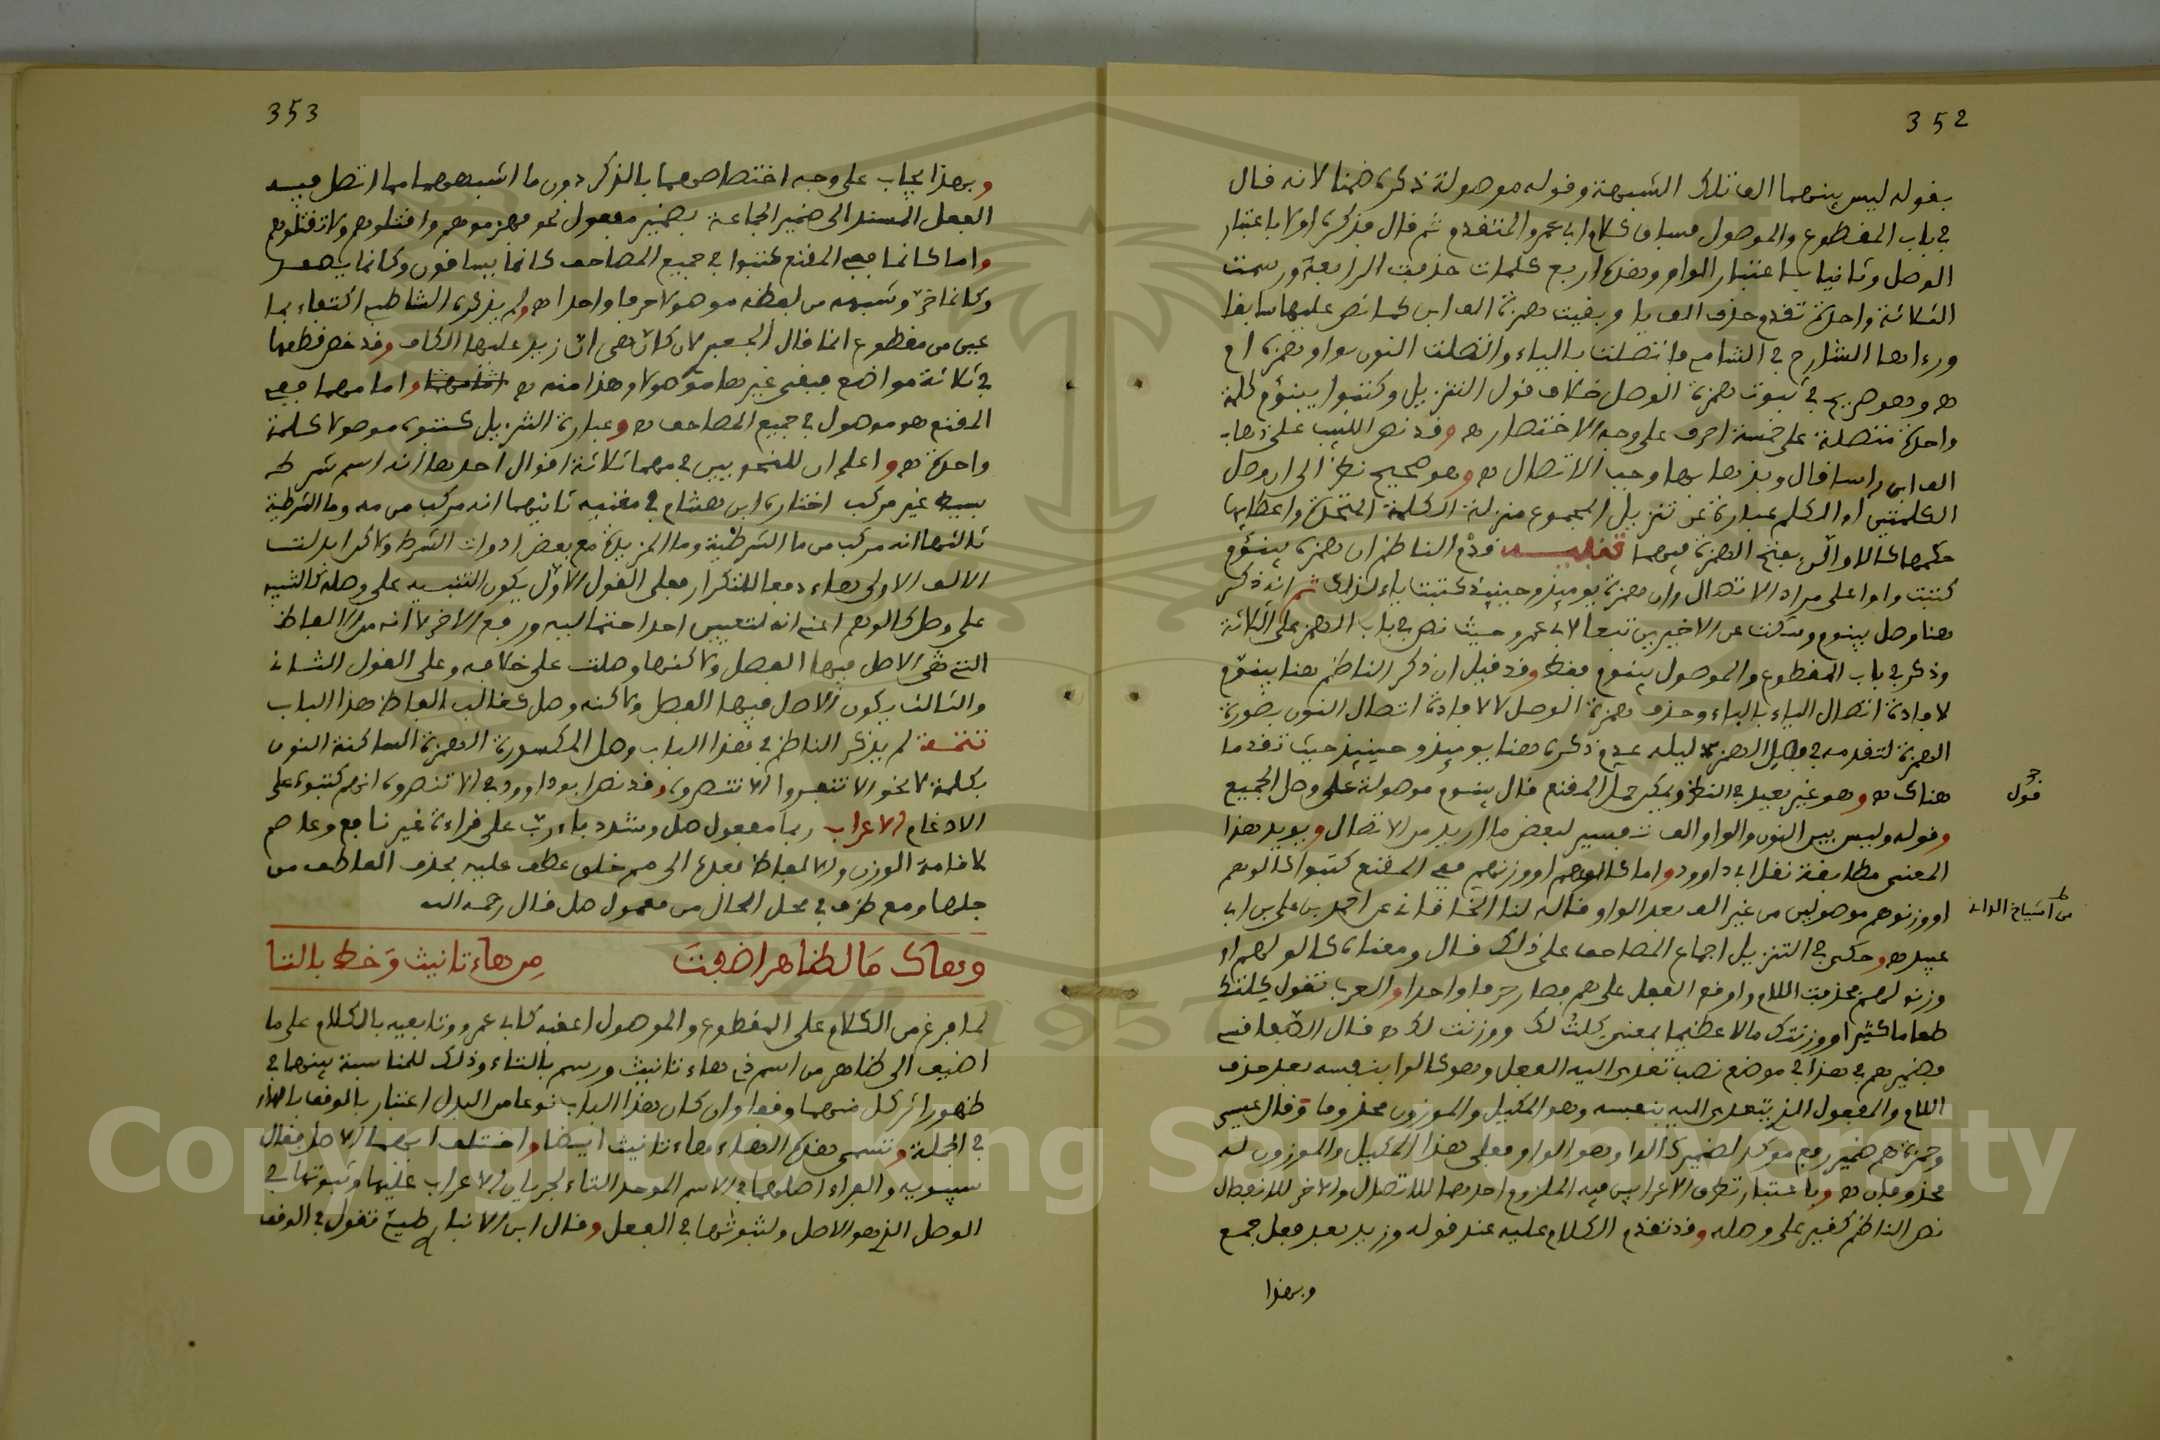 352
بقوله ليس بينهما الف تلك الشبهة وقوله موصولة ذكره ضمنا لانه قال
في باب المقطوع والموصول فساق كلام ابي عمرو المتقدم ثم قال فذكره اولا باعتبار
الوصل وثانيا باعتبار الواو وهذه اربع كلمات حذفت الرابعة ورسمت
الثلاثة واحدة تقدم حذف الف يا وبقيت همزة الف ابن كما نص عليها سابقا
ورءاها الشارح في الشامي فاتصلت بالياء واتصلت النون بواو همزة ام
ه وهو صريح في ثبوت همزة الوصل خلاف قول التنزيل وكتبوا يبنؤم كلمة
واحدة متصلة على خمسة احرف على وجه الاختصار ه وقد نص اللبيب على ذهاب
الف ابن راسا قال وبذهابها وجب الاتصال ه وهو صحيح نظرا الى ان وصل
الكلمتين او الكلم عبارة عن تنزيل المجموع منزلة الكلمة المتحدة واعطائها
حكمها بفتح الهمزة فيهما تنبيه قدم الناظم ان همزة يبنؤم
كتبت واوا على مراد الاتصال وان همزة يومئذ وحينئذ كتبت ياء لذلك ثم انه ذكر
هنا وصل يبنؤم وسكت عن الاخيرين تبعا لابي عمرو حيث نص في باب الهمز على الثلاثة
وذكر في باب المقطوع والموصول يبنؤم فقط وقد قيل ان ذكر الناظم هنا يبنؤم
لافادة اتصال الياء بالباء وحذف همزة الوصل لا لافادة اتصال النون بصورة
الهمزة لتقدمه في فصل الهمز دليله عدم ذكره هنا يومئذ وحينئذ حيث تقدما
هناك ه وهو غير بعيد في النظر ويمكن حمل المقنع قال يبنؤم موصولة على وصل الجميع
قول
وقوله وليس بين النون والواو الف تفسير لبعض ما اريد من الاتصال ويويد هذا
المعنى مطابقة نقل ابي داوود واما كالوهم او وزنوهم ففي المقنع كتبوا كالوهم
او وزنوهم موصولين من غير الف بعد الواو وقاله لنا الخاقاني عن احمد بن علي بن ابي
من اشياخ الداني
عبيد ه وحكى في التنزيل اجماع المصاحف على ذلك قال ومعناه كالوا لهم او
وزنوا لهم فحذفت اللام واوقع الفعل على هم فصار حرفا واحدا والعرب تقول كلتك
طعاما كثيرا ووزنتك مالا عظيما بمعنى كلت لك ووزنت لك ه قال الصفاقسي
فضمير هم في هذا في موضع نصب تعدى اليه الفعل وهو كالوا بنفسه بعد حذف
اللام والمفعول الذي يتعدى اليه بنفسه وهو المكيل والموزون محذوف وقال عيسى
وحمزة هم ضمير رفع موكد لضمير كالوا وهو الواو فعلى هذا المكيل والموزون له
محذوفان ه وباعتبار تطرق الاعرابين فيه الملزوم احدهما للاتصال والاخر للانفصال
نص الناظم كغيره على وصله وقد تقدم الكلام عليه عند قوله وزيد بعد فعل جمع
وبهذا
353
وبهذا يجاب على وجه اختصاصهما بالذكر دون ما اشبههما مما اتصل فيه
الفعل المسند الى ضمير الجماعة بضمير مفعول نحو فهزموهم واقتلوهم ولا تقتلوهم
واما كانما ففي المقنع كتبوا في جميع المصاحف كانما يساقون وكانما يصعد
وكانما خر وشبهه من لفظه موصولا حرفا واحدا ه ولم يذكره الشاطبي اكتفاء بما
عين من مقطوع انما قال الجعبري لان كان هي ان زيد عليها الكاف وقد خص قطعها
في ثلاثة مواضع فبقى غيرها موصولا وهذا منه ه واما مهما ففي
المقنع هو موصول في جميع المصاحف ه وعبارة التنزيل كتبوه موصولا كلمة
واحدة ه واعلم ان للنحويين في مهما ثلاثة اقوال احدها انه اسم شرط
بسيط غير مركب اختاره ابن هشام في مغنيه ثانيهما انه مركب من مه وما الشرطية
ثالثها انه مركب من ما الشرطية وما المزيدة مع بعض ادوات الشرط ولاكن ابدلت
الالف الاولى هاء دفعا للتكرار فعلى القول الاول يكون التنبيه على وصله كالتنبيه
على وصل كالوهم اعني انه لتعيين احد احتماليه ورفع الاخر لا انه من الالفاظ
التي هي الاصل فيها الفصل ولاكنها وصلت على خلافه وعلى القول الثاني
والثالث يكون الاصل فيها الفصل ولاكنه وصل كغالب الفاظ هذا الباب
تتمة لم يذكر الناظم في هذا الباب وصل المكسورة الهمزة الساكنة النون
بكلمة لا نحو الا تنفروا الا تنصروه وقد نص ابو داوود في الا تنصروه انهم كتبوه على
الادغام الاعراب ربما مفعول صل وشدد باء رب على قراءة غير نافع وعاصم
لاقامة الوزن والالفاظ بعدها الى مم خلق عطف عليه بحذف العاطف من
جلها ومع ظرف في محل الحال من معمول صل قال رحمه الله
وهاك ما لظاهر اضفت من هاء تانيث وخط بالتا
لما فرغ من الكلام على المقطوع والموصول اعقبه كابي عمرو وتابعيه بالكلام على ما
اضيف الى ظاهر من اسم ذي هاء تانيث ورسم بالتاء وذلك للمناسبة بينهما في
ظهور اثر كل منهما وقفا وان كان هذا الباب نوعا من البدل اعتبار بالوقف بالهاء
في الجملة وتسمى هذه الهاء هاء تانيث ايضا واختلف ايهما الاصل فقال
سيبويه والفراء اصلهما في الاسم الموحد التاء لجريان الاعراب عليها وثبوتها في
الوصل الذي هو الاصل ولثبوتها في الفعل وقال ابن الانباري طيئ تقول في الوقف